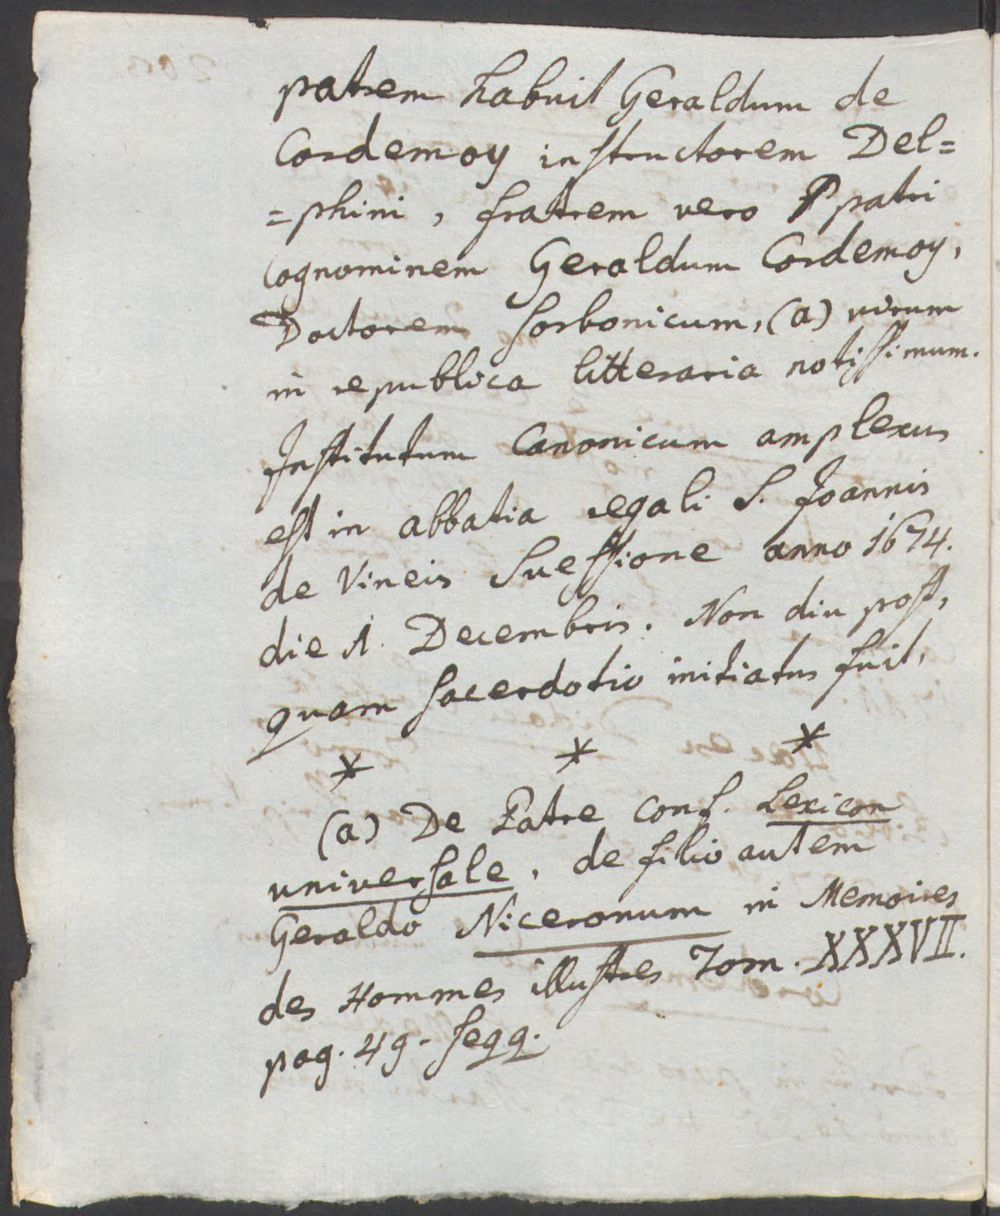 patrem habuit Geraldum de
Cordemoy instructorem Del=
=phini, fratrem vero patri
Cognominem Geraldum Cordemoy,
Doctorem Sorbonicum, (a) virum
in republica litteraria notissimum.
Institutum Canonicum amplexus
est in abbatia regali S. Joannis
de Vineis Suessione anno 1674.
die 1. Decembris. Non diu post,
quam sacerdotio initiatus fuit,
* * *
(a) De Patre conf. Lexicon
universale, de filio autem
Geraldo Niceronum in Memoires
des Hommes illustres Tom. XXXVII.
pag. 49. seqq.